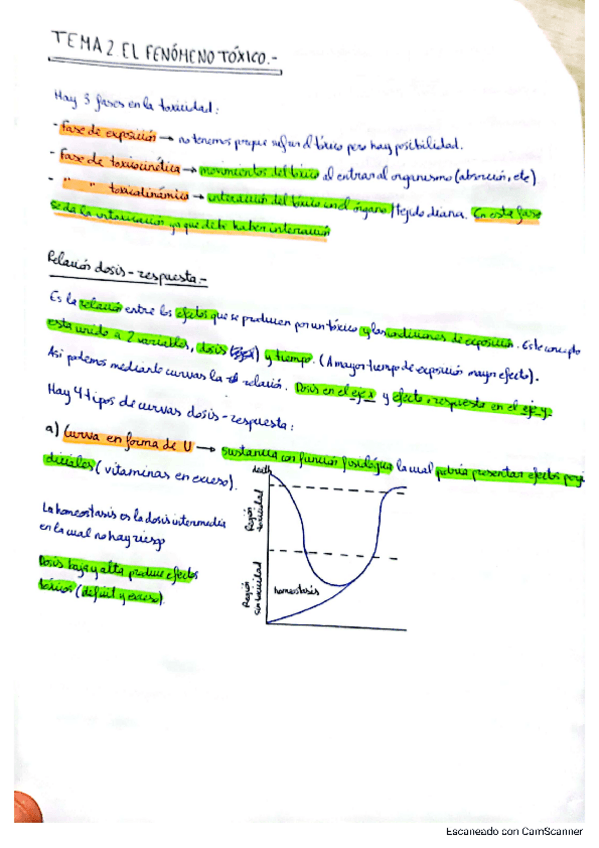 TEMA 2 EL FENÓMENO TÓXICO.-
Hay 3 fases en la toxicidad:
- Fase de exposición → no tenemos porque sufrir el tóxico pero hay posibilidad.
- Fase de toxicocinética → movimientos del tóxico al entrar al organismo (absorción, etc)
- " " toxicodinámica → interacción del tóxico en el órgano / tejido diana. En esta fase
se da la intoxicación ya que debe haber interacción
Relación dosis - respuesta.-
Es la relación entre los efectos que se producen por un tóxico y las condiciones de exposición. Este concepto
esta unido a 2 variables, dosis y tiempo. (A mayor tiempo de exposición mayor efecto).
Así podemos mediante curvas la relación. Dosis en el eje x y efecto o respuesta en el eje y.
Hay 4 tipos de curvas dosis - respuesta:
a) Curva en forma de U → sustancia con función fisiológica la cual podría presentar efectos perju
diciales (vitaminas en exceso).
death
Región toxicidad
La homeostasis es la dosis intermedia
en la cual no hay riesgo
Dosis baja y alta produce efectos
tóxicos (déficit y exceso)
homeostasis
Región sin toxicidad
Escaneado con CamScanner